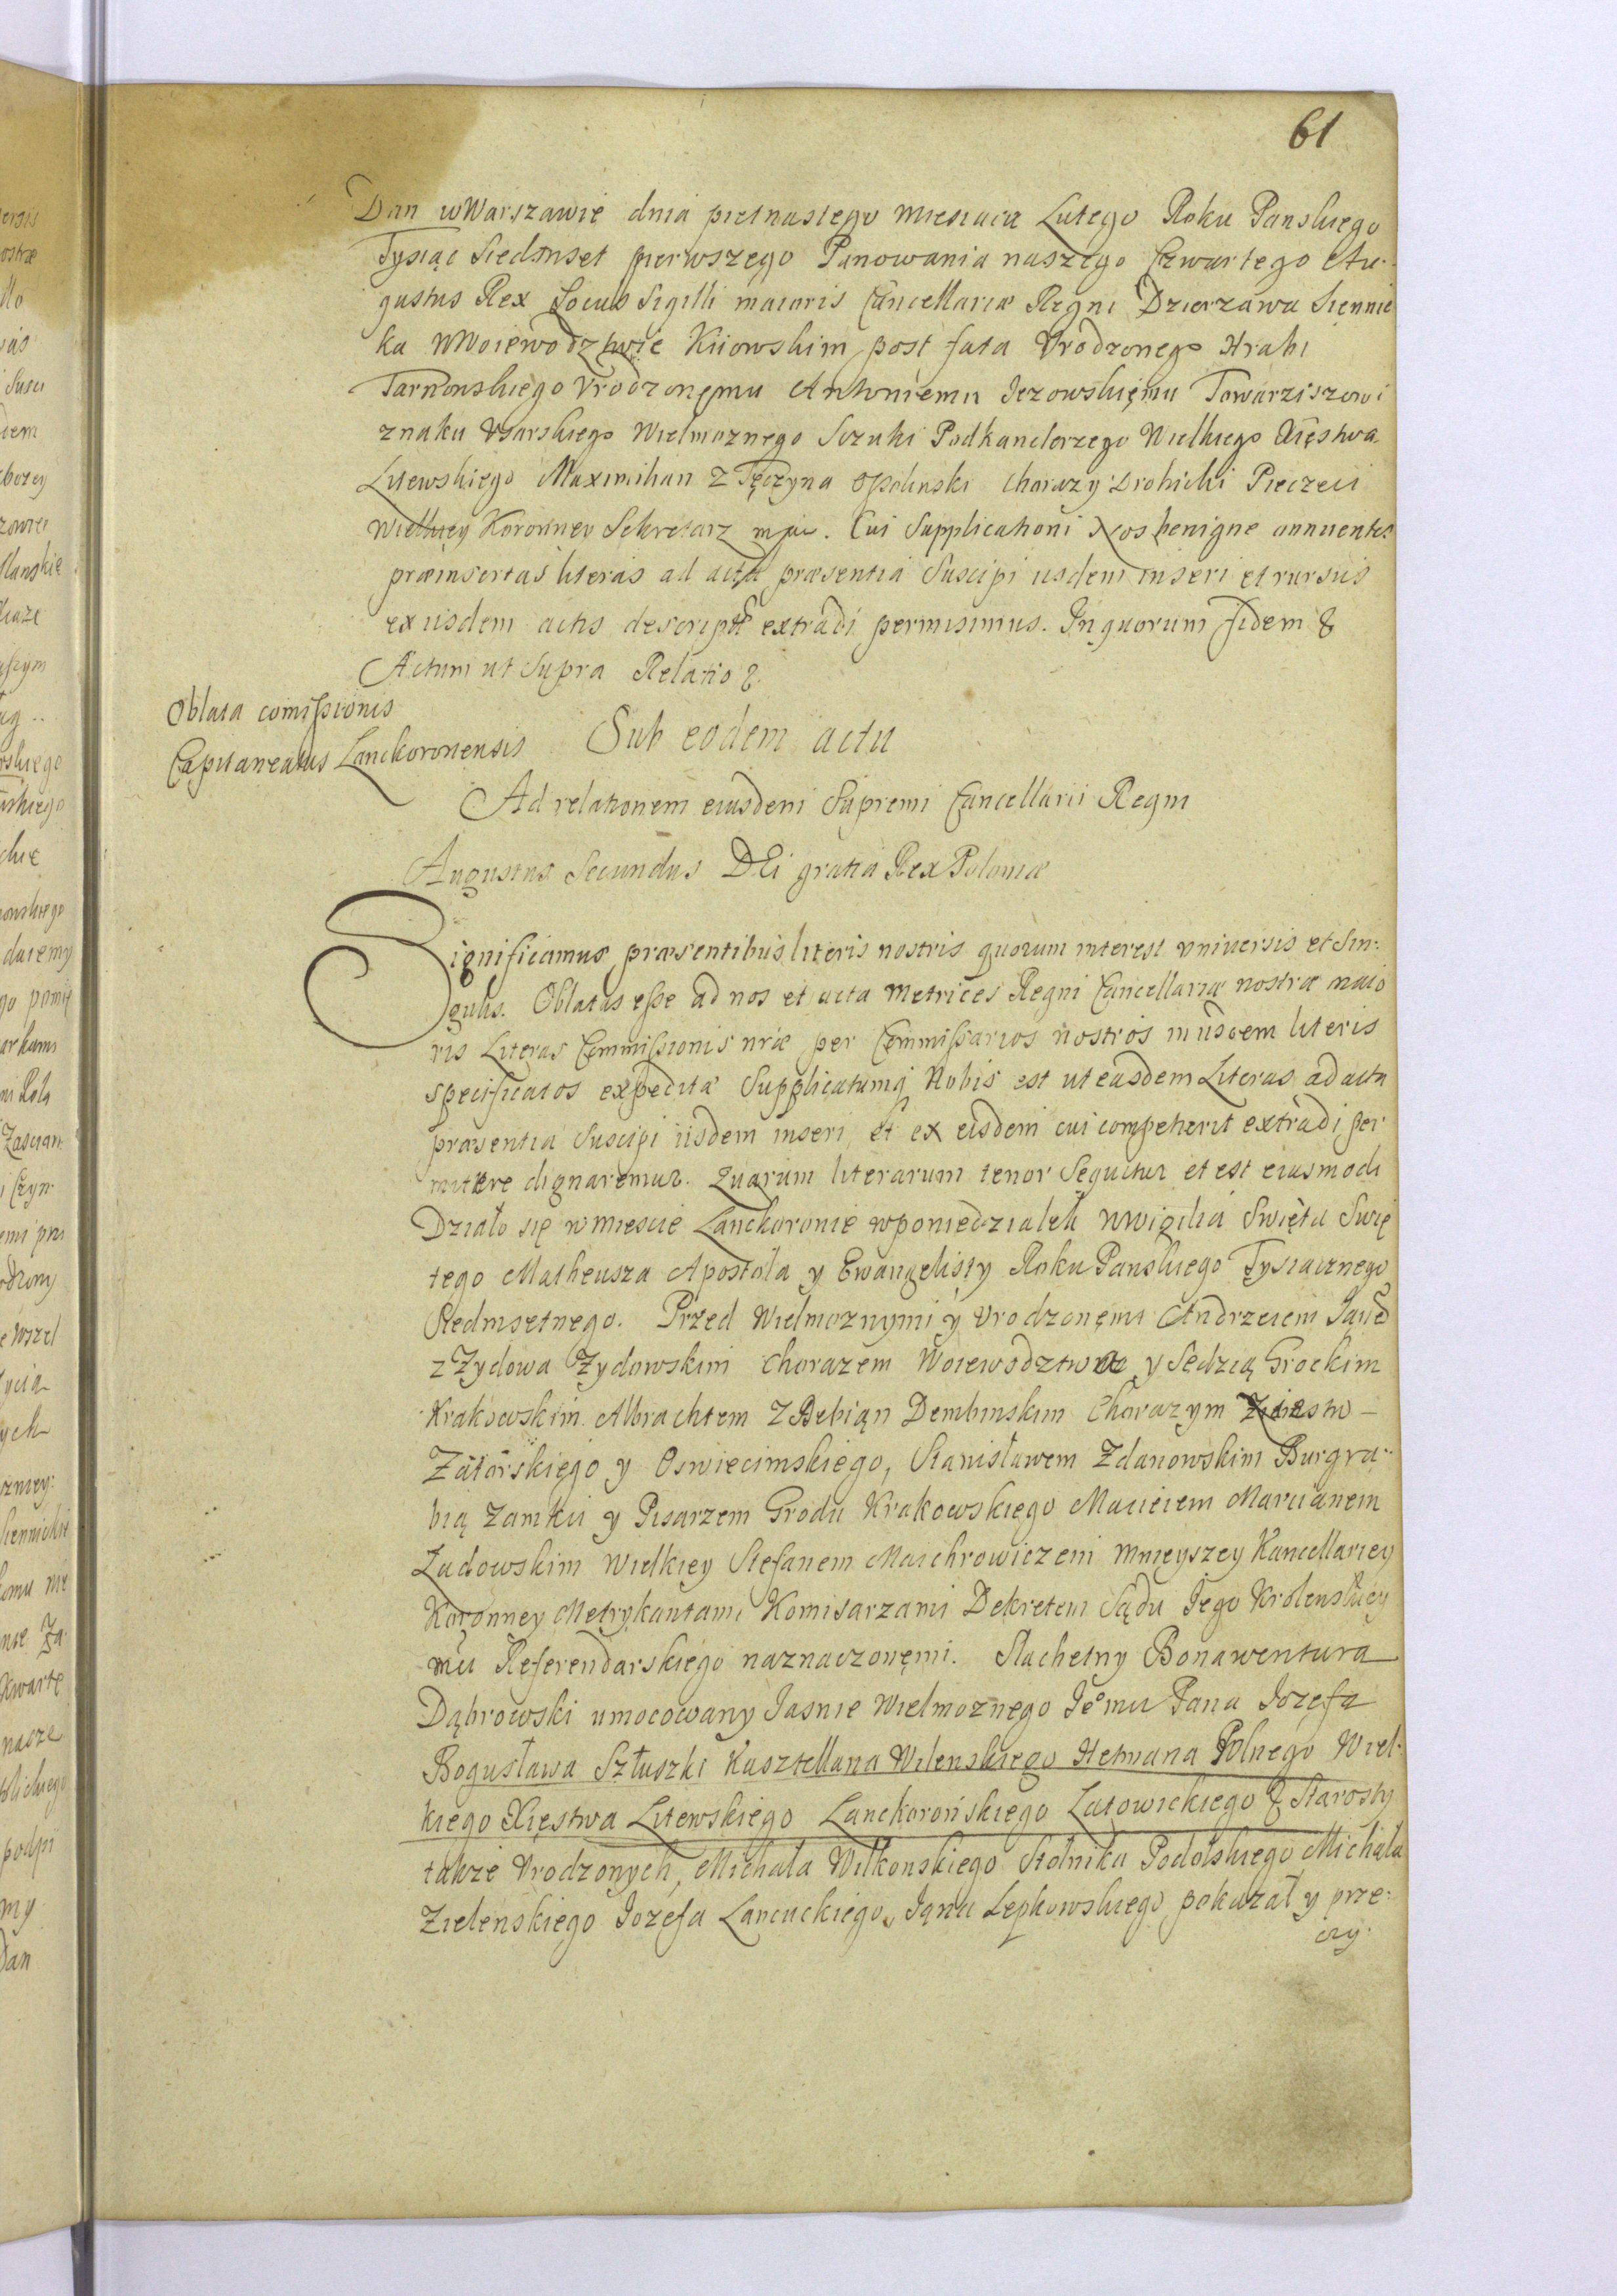 61
Dan w Warszawie dnia pietnastego Miesiaca Lutego Roku Panskiego
Tysiąc Siedmset pierwszego Panowania naszego Czwartego Au-
gustus Rex Locus Sigilli maioris Cancellariæ Regni Dzierzawa Siennic
ka w Woiewodztwie Kiiowskim post fata Vrodzonego Hrabi
Tarnowskiego Vrodzonemu Antoniemu Jezowskiemu Towarziszowi
znaku Vsarskiego Wielmoznego Sczuki Podkanclerzego Wielkiego Xięstwa
Litewskiego Maximilian z Tęczyna Opolinski Chorazy Drohicki Pieczeci
Wielkiey Koronney Sekretarz mpa. Cui Supplicationi Nos benigne annuentes
præinsertas literas ad acta præsentia Suscipi iisdem inseri et rursus
ex iisdem actis descriptas extradi permisimus. In quorum fidem &
Actum ut Supra Relatio &.
Oblata comissionis
Capitaneatus Lanckoronensis
Sub eodem actu
Ad relationem eiusdem Supremi Cancellarii Regni
Augustus Secundus DEi gratia Rex Poloniæ
Significamus præsentibus literis nostris quorum interest vniversis et Sin-
gulis. Oblatas esse ad nos et acta Metrices Regni Cancellariæ nostræ maio
ris Literas Commissionis nræ per Commissarios nostros in iisdem literis
specificatos expedita Supplicatumq Nobis est ut easdem Literas ad acta
præsentia Suscipi iisdem inseri et ex eisdem cui competierit extradi per
mittere dignaremur. Quarum literarum tenor Sequitur et est eiusmodi
Działo się w miescie Lanckoronie w poniedzialek w Wigilia Swięta Swię
tego Matheusza Apostola y Ewangelisty Roku Panskiego Tysiacznego
Siedmsetnego. Przed Wielmoznymi y Vrodzonemi Andrzeiem
z Zydowa Zydowskim Chorazem Woiewodztwa y Sedzią Grockim
Krakowskim Albrachtem z Debian Dembinskim Chorazym Xiestw
Zatorskiego y Oswiecimskiego, Stanisławem Zdanowskim Burgra-
bią Zamku y Pisarzem Grodu Krakowskiego Macieiem Marcianem
Ladowskim Wielkiey Stefanem Maichrowiczem Mnieyszey Kancellariey
Koronney Metrykantami Komisarzami Dekretem Sądu Jego Krolewskiey
mci Referendarskiego naznaczonemi. Slachetny Bonawentura
Dąbrowski umocowany Jasnie Wielmoznego Jeomci Pana Jozefa
Bogusława Słuszki Kasztellana Wilenskiego Hetmana Polnego Wiel-
kiego Xięstwa Litewskiego Lanckorońskiego Latowickiego & Starosty
takze Vrodzonych, Michała Wilkonskiego Stolnika Podolskiego Michała
Zielenskiego Jozefa Lancuckiego Jana Lepkowskiego pokazał y prze-
czy-